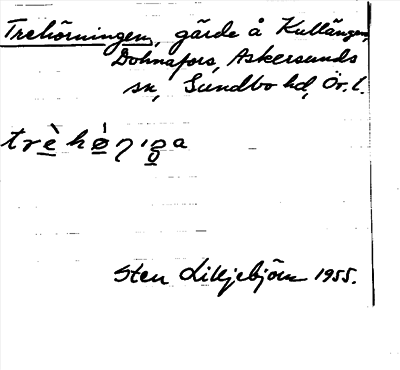 Trehörningen, gärde å Kullängen,
Dohnafors, Askersunds
sn, Sundbo hd, Ör. l.
Sten Liljebjörn 1955.